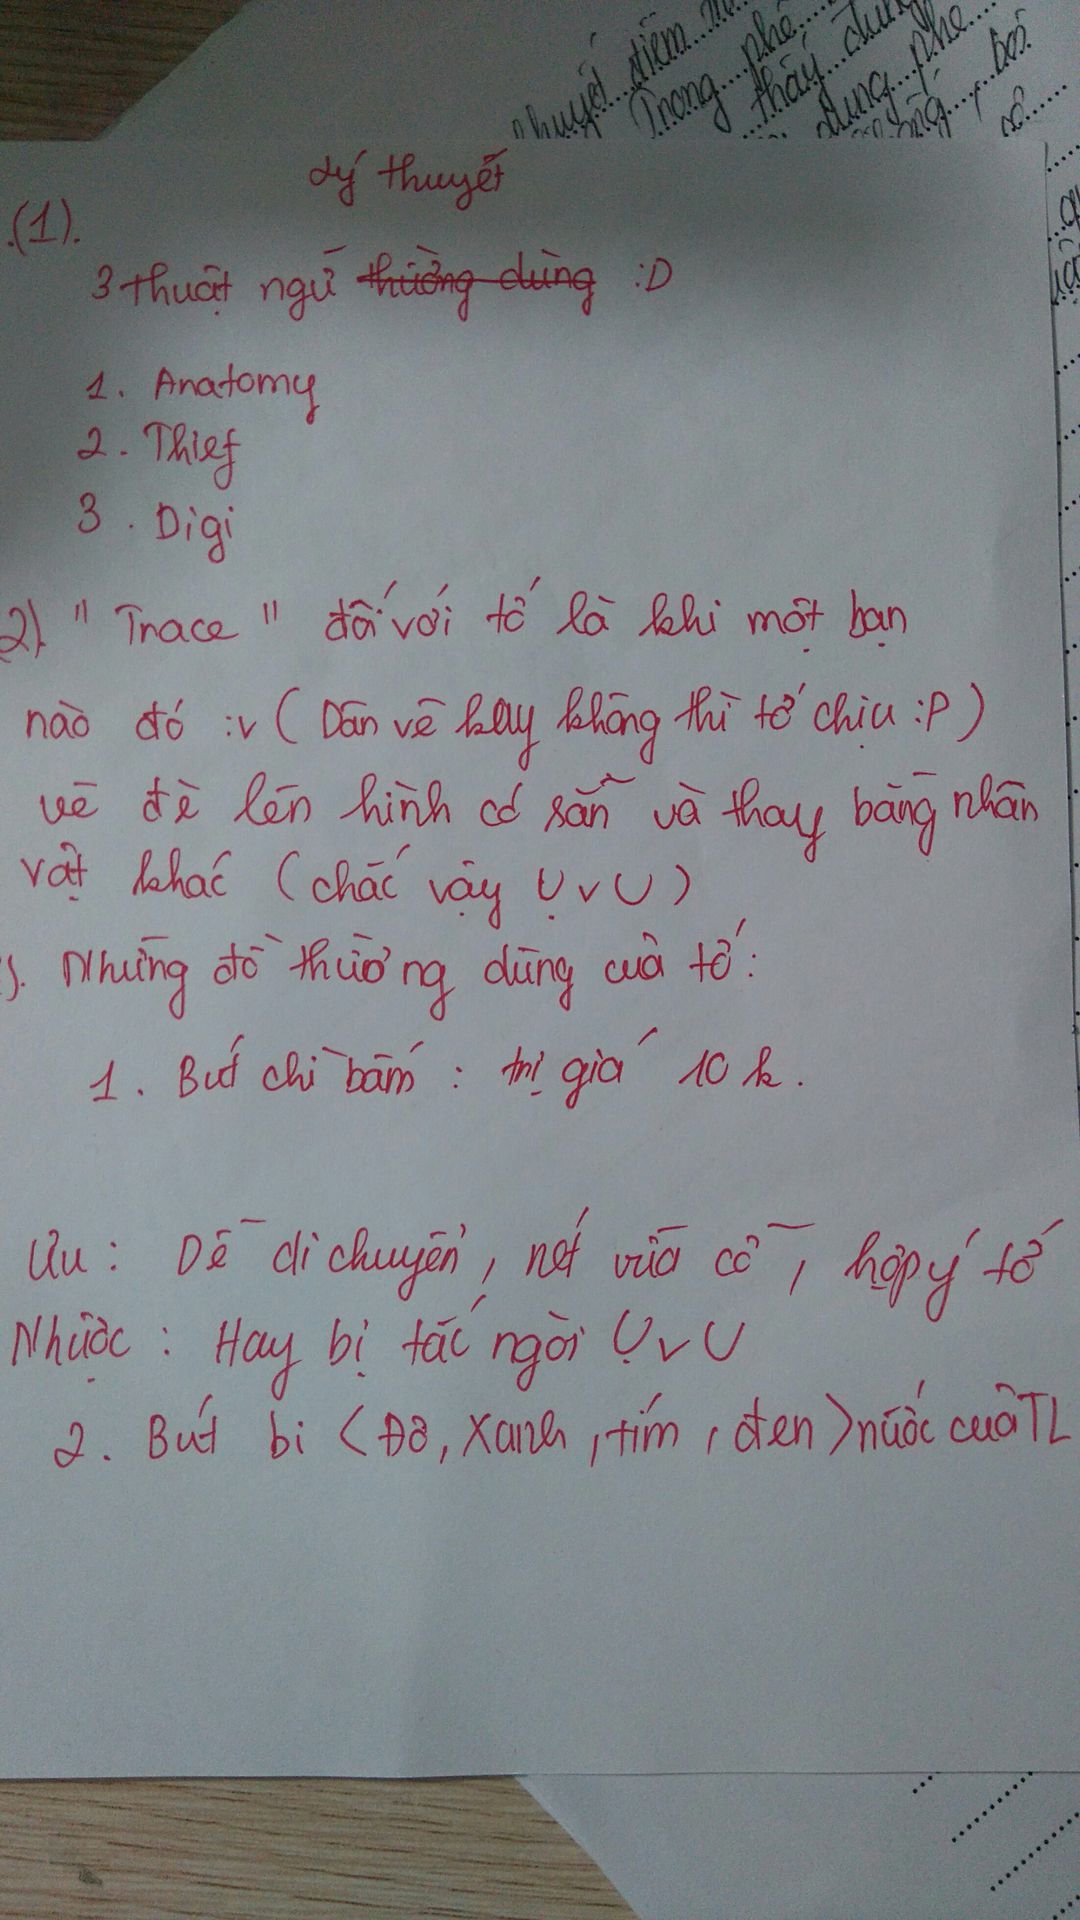 khuyết điểm
Trong phê
thấy dùng
dung phe
Lý thuyết
(1).
3 thuật ngữ thường dùng :D
1. Anatomy
2. Thief
3. Digi
2). "Trace" đối với tớ là khi một bạn
nào đó :v (Dân vẽ hay không thì tớ chịu :P)
vẽ đè lên hình có sẵn và thay bằng nhân
vật khác (chắc vậy UvU)
). Những đồ thường dùng của tớ:
1. Bút chì bấm : trị giá 10k.
Ưu : Dễ di chuyển, nét vừa cỡ, hợp ý tớ
Nhược : Hay bị tắc ngòi UvU
2. Bút bi <Đỏ, Xanh, tím, đen> nước của TL